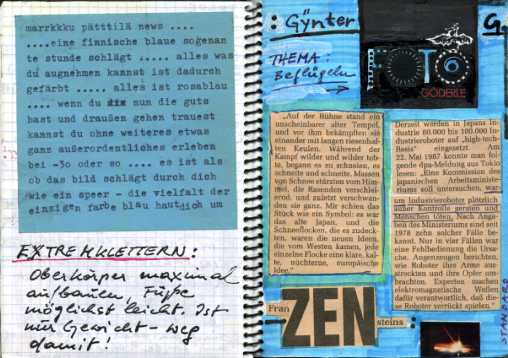 marrkku pätttilä news ....
....eine finnische blaue sogenan
te stunde schlägt ..... alles was
du augnehmen kannst ist dadurch
gefärbt ..... alles ist rosablau
.... wenn du nun die guts
hast und draußen gehen trauest
kannst du ohne weiteres etwas
ganz außerordentliches erleben
bei -3o oder so .... es ist als
ob das bild schlägt durch dich
wie ein speer - die vielfalt der
einzigen farbe blau haut dich um
EXTREMKLETTERN:
Oberkörper maximal
aufbauen, Füße
möglichst leicht. Ist
nur Gewicht - weg
damit!
: Gÿnter
G.
THEMA:
Beflügeln
FOTO
GÖDERLE
„Auf der Bühne stand ein
unscheinbarer alter Tempel,
und vor ihm bekämpften sie
einander mit langen riesenhaf-
ten Keulen. Während der
Kampf wilder und wilder tob-
te, begann es zu schneien, es
schneite und schneite, Massen
von Schnee stürzten vom Him-
mel, die Rasenden verschlei-
ernd, und zuletzt verschwan-
den sie ganz. Mir schien das
Stück wie ein Symbol: es war
das alte Japan, und die
Schneeflocken, die es zudeck-
ten, waren die neuen Ideen,
die vom Westen kamen, jede
einzelne Flocke eine klare, kal-
te, nüchterne, europäische
Idee."
Derzeit werden in Japans
Industrie 80.000 bis 100.000 Indu-
strieroboter auf „high-tech-
Basis" eingesetzt. Am
22. Mai 1987 konnte man fol-
gende dpa-Meldung aus Tokio
lesen: „Eine Kommission des
japanischen Arbeitsministe-
riums soll untersuchen, war-
um Industrieroboter plötzlich
außer Kontrolle geraten und
Menschen töten. Nach Anga-
ben des Ministeriums sind seit
1978 zehn solcher Fälle be-
kannt. Nur in vier Fällen war
eine Fehlbedienung die Ursa-
che. Augenzeugen berichten,
wie Roboter ihre Arme aus-
streckten und ihre Opfer um-
brachten. Experten machen
elektromagnetische Wellen
dafür verantwortlich, daß die-
se Roboter verrückt spielen."
Fran
ZEN
steins